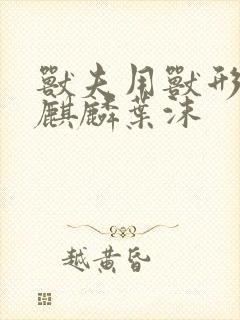 獸夫用獸形
麒麟葉沫
越黄昏